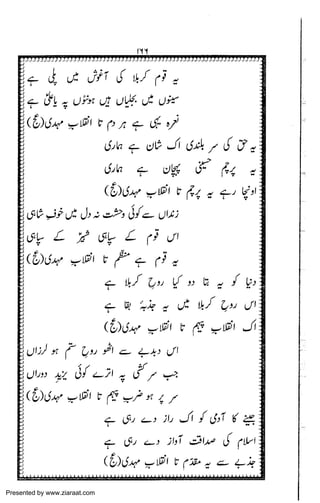 ۱۶۶
یہ قوم کربلا کی آغوش میں پلی ہے
سینوں میں بجلیاں ہیں ہونٹوں پہ یاعلیؑ ہے
نعرہ یہی ہے ہر دم تا انقلاب مہدی(عج)
یہ حق کی سر بلندی اک شان ہے ہماری
یہ پرچم حسینی پہچان ہے ہماری
اونچا رہے یہ پرچم تا انقلاب مہدی(عج)
زنداں سے کوئی وحشت نہ دل میں خوف شاہی
اس قوم کے سپاہی شبیرؑ کے سپاہی
یہ قوم ہے منظم تا انقلاب مہدی(عج)
دنیا کو یہ بتا دو کیا روح کربلا ہے
اس روح کربلا میں یہ جذبۂ بقا ہے
اک انقلاب پیہم تا انقلاب مہدی(عج)
اس دبدبے سے اٹھو روح ستم ہو لرزاں
جب سر کشی پہ اترے کوئی یزید دوراں
سر پر ہو ضرب پیہم تا انقلاب مہدی(عج)
جینے کا آدمی کو اک راز دے رہی ہے
اسلام کی صداقت آواز دے رہی ہے
جذبے سے یہ مقدم تا انقلاب مہدی(عج)
Presented by www.ziaraat.com